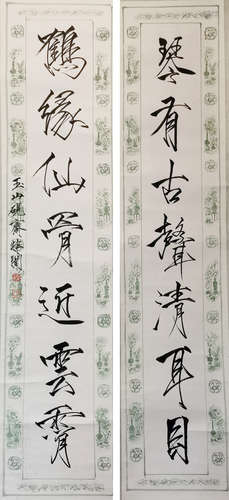 琴有古聲清耳目
鶴緣仙骨近雲霄
玉山硯齋